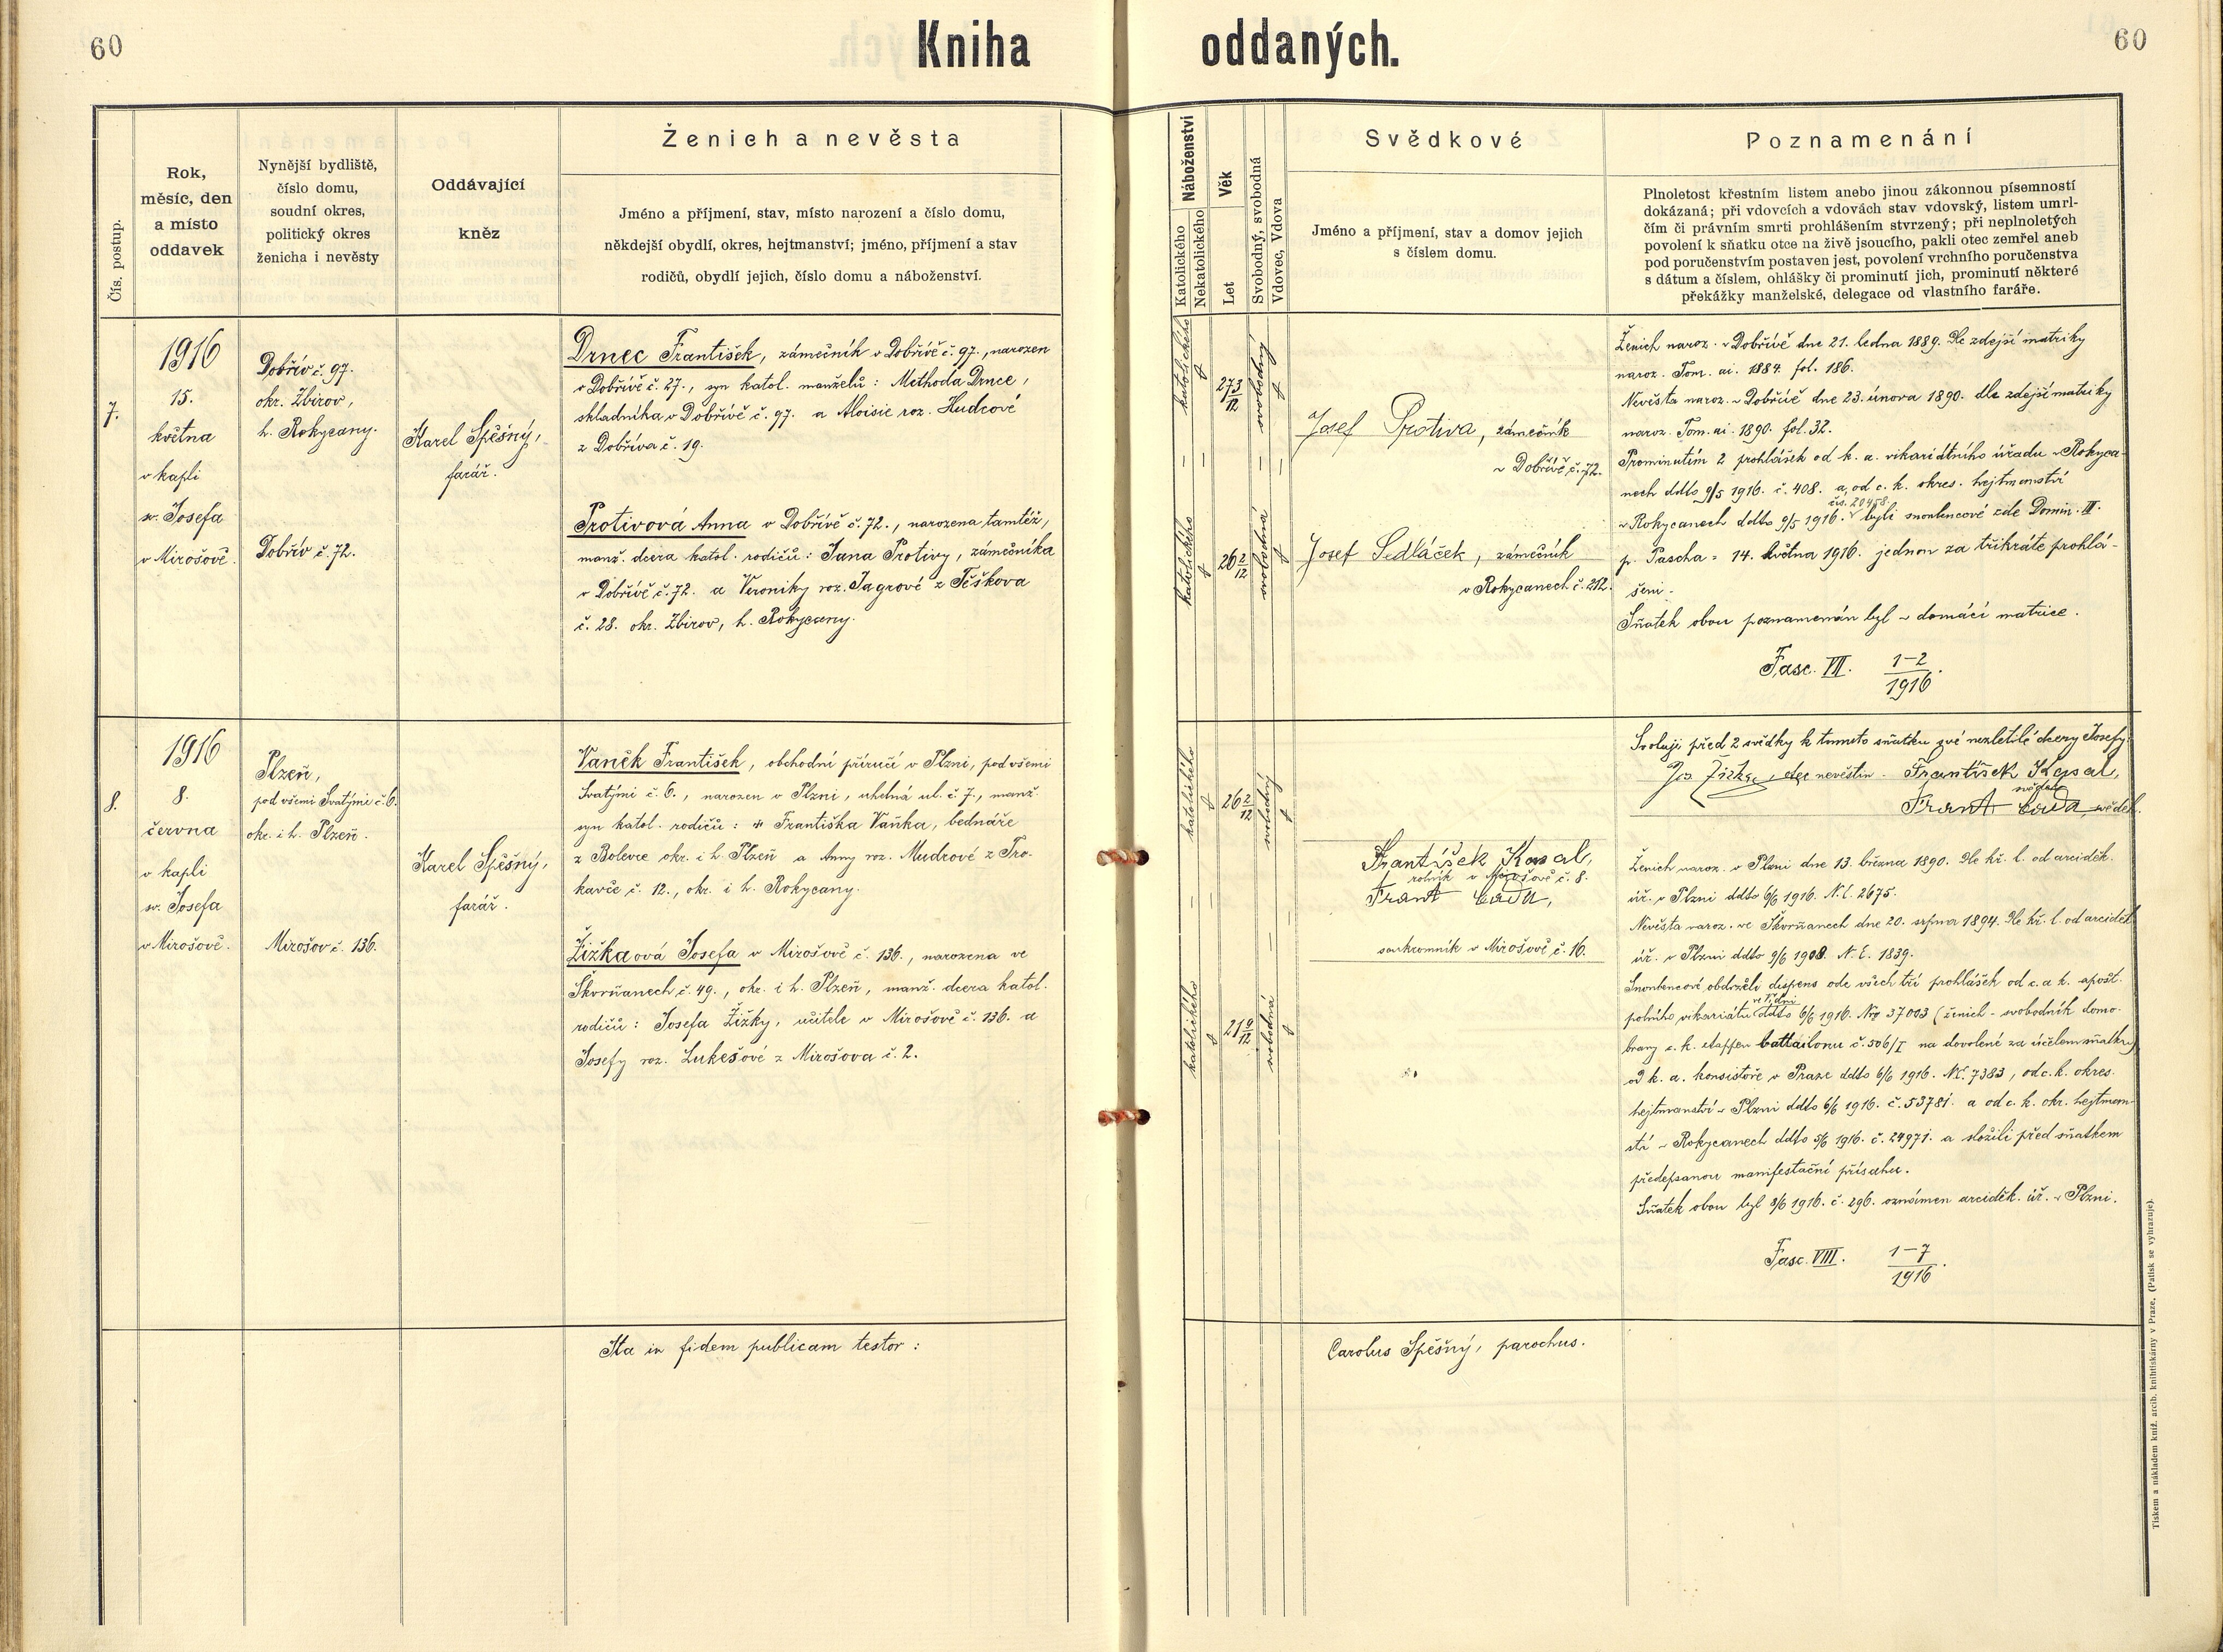 60
Kniha oddaných.
60
Čís. postup.
Rok,
měsíc, den
a místo
oddavek
Nynější bydliště,
číslo domu,
soudní okres,
politický okres
ženicha i nevěsty
Oddávající
kněz
Ženich a nevěsta
Jméno a příjmení, stav, místo narození a číslo domu,
někdejší obydlí, okres, hejtmanství; jméno, příjmení a stav
rodičů, obydlí jejich, číslo domu a náboženství.
Náboženství
Katolického
Nekatolického
Věk
Let
Svobodný, svobodná
Vdovec, Vdova
Svědkové
Jméno a příjmení, stav a domov jejich
s číslem domu.
Poznamenání
Plnoletost křestním listem anebo jinou zákonnou písemností
dokázaná; při vdovcích a vdovách stav vdovský, listem umrl-
čím či právním smrti prohlášením stvrzený; při neplnoletých
povolení k sňatku otce na živě jsoucího, pakli otec zemřel aneb
pod poručenstvím postaven jest, povolení vrchního poručenstva
s dátum a číslem, ohlášky či prominutí jich, prominutí některé
překážky manželské, delegace od vlastního faráře.
7.
1916
15.
května
v kapli
sv. Josefa
v Mirošově.
Dobřív č. 97.
okr. Zbirov,
h. Rokycany.
Dobřív č. 72.
Karel Spěšný,
farář.
Drnec František, zámečník v Dobřívě č. 97., narozen
v Dobřívě č. 27., syn katol. manželů: Methoda Drnce,
skladníka v Dobřívě č. 97. a Aloisie roz. Hudcové
z Dobříva č. 19.
Protivová Anna v Dobřívě č. 72., narozena tamtéž,
manž. dcera katol. rodičů: Jana Protivy, zámečníka
v Dobřívě č. 72. a Veroniky roz. Jagrové z Těškova
č. 28. okr. Zbirov, h. Rokycany.
katolického
27 3/12
svobodný
katolického
26 2/12
svobodná
Josef Protiva, zámečník
v Dobřívě č. 72.
Josef Sedláček, zámečník
v Rokycanech č. 212.
Ženich naroz. v Dobřívě dne 21. ledna 1889. Dle zdejší matriky
naroz. Tom. ai. 1884. fol. 186.
Nevěsta naroz. v Dobřívě dne 23. února 1890. dle zdejší matriky
naroz. Tom. ai. 1890. fol. 32.
Prominutím 2 prohlášek od k. a. vikariátního úřadu v Rokyca-
nech ddto 9/5 1916. č. 408. a od c. k. okres. hejtmanství
čís. 20458.
v Rokycanech ddto 9/5 1916. byli snoubencové zde Domin. III.
p. Pascha = 14. května 1916. jednou za třikráte prohlá-
šeni.
Sňatek obou poznamenán byl v domácí matrice.
Fasc. VII. 1-2/1916.
8.
1916
8.
června
v kapli
sv. Josefa
v Mirošově.
Plzeň,
pod všemi Svatými č. 6.
okr. i h. Plzeň.
Mirošov č. 136.
Karel Spěšný,
farář.
Vaněk František, obchodní příručí v Plzni, pod všemi
Svatými č. 6., narozen v Plzni, uhelná ul. č. 7., manž.
syn katol. rodičů: + Františka Vaňka, bednáře
z Bolevce okr. i h. Plzeň a Anny roz. Mudrové z Pro-
kavče č. 12., okr. i h. Rokycany.
Žižkaová Josefa v Mirošově č. 136., narozena ve
Škvrňanech č. 49., okr. i h. Plzeň, manž. dcera katol.
rodičů: Josefa Žižky, učitele v Mirošově č. 136. a
Josefy roz. Lukešové z Mirošova č. 2.
katolického
26 2/12
svobodný
katolického
svobodná
František Kasal,
rolník v Mirošově č. 8.
Frant Čada,
soukromník v Mirošově č. 16.
Svoluji před 2 svědky k tomuto sňatku své nezletilé dcery Josefy.
Jos. Žižka, otec nevěstin. František Kasal,
svědek
Frant Čada, svědek.
Ženich naroz. v Plzni dne 13. března 1890. Dle kř. l. od arciděk.
úř. v Plzni ddto 6/6 1916. N. E. 2675.
Nevěsta naroz. ve Škvrňanech dne 20. srpna 1894. Dle kř. l. od arciděk.
úř. v Plzni ddto 9/6 1908. N. E. 1839.
Snoubenci obdrželi dispens ode všech tří prohlášek od c. a k. apošt.
ve Vídni
polního vikariátu ddto 6/6 1916. Nro 37003 (ženich - svobodník domo-
brany c. k. etappen battailonu č. 506/I na dovolené za účelem sňatku)
od k. a. konsistoře v Praze ddto 6/6 1916. NE. 7383, od c. k. okres.
hejtmanství v Plzni ddto 6/6 1916. č. 53781. a od c. k. okr. hejtman-
ství v Rokycanech ddto 5/6 1916. č. 24971. a složili před sňatkem
předepsanou manifestační přísahu.
Sňatek obou byl 8/6 1916. č. 296. oznámen arciděk. úř. v Plzni.
Fasc. VIII. 1-7/1916.
Ita in fidem publicam testor:
Carolus Spěšný, parochus.
Tiskem a nákladem kníž. arcib. knihtiskárny v Praze. (Patisk se vyhrazuje).